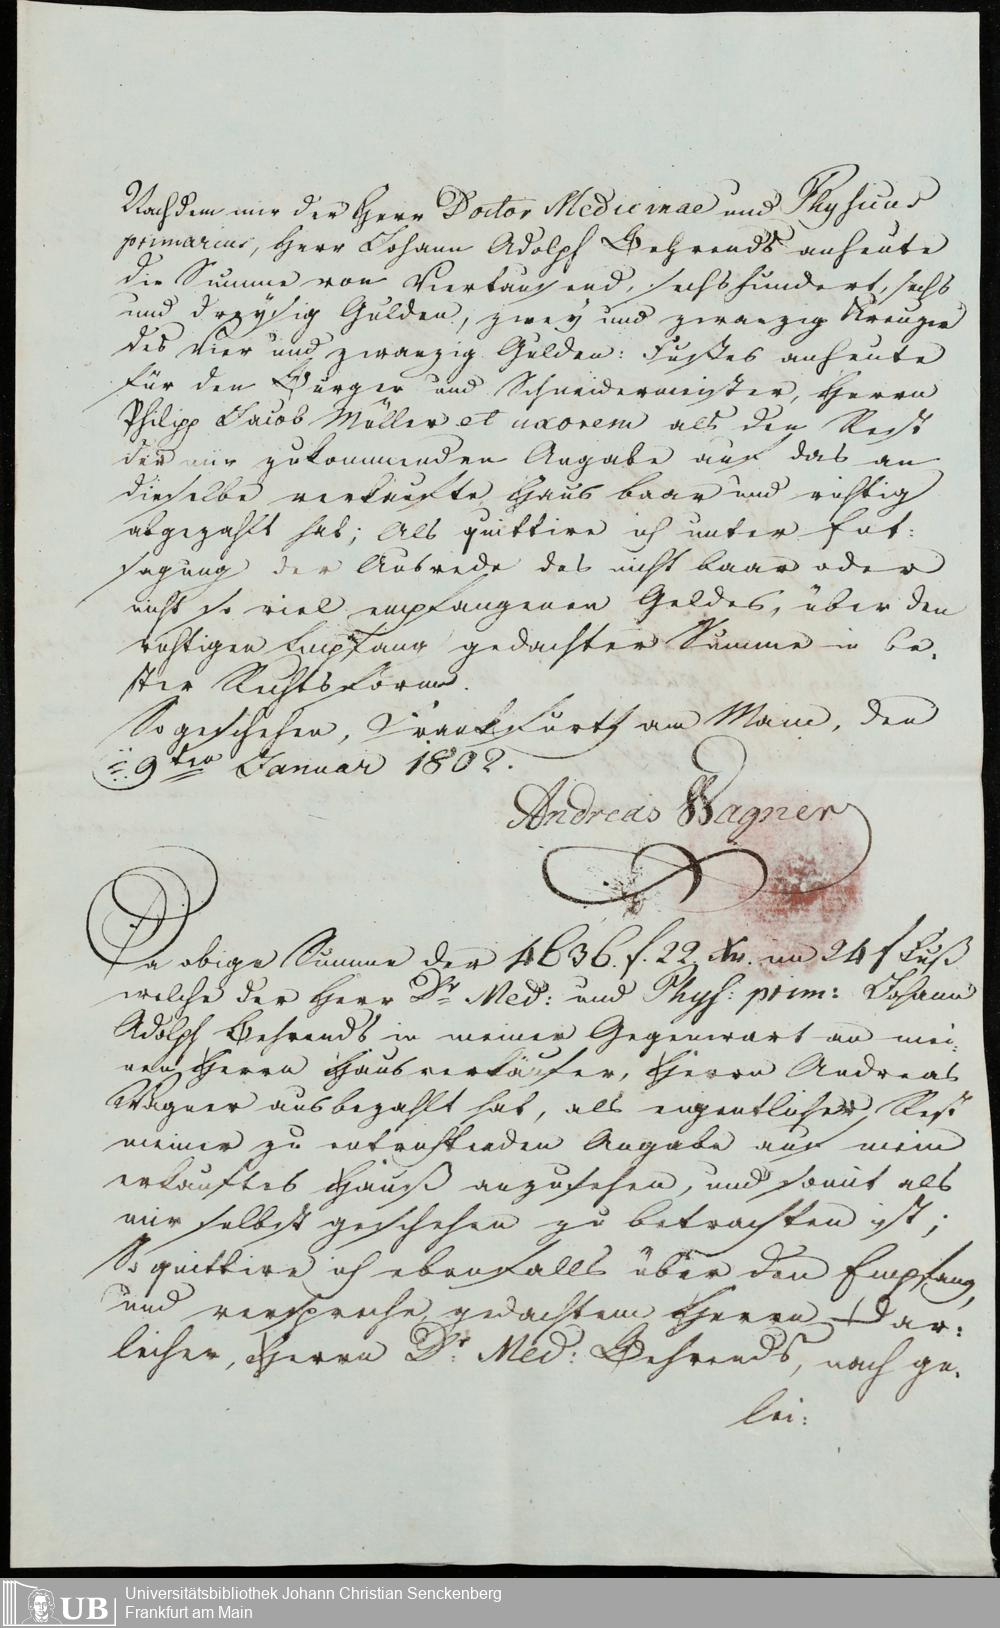 Nachdem mir der Herr Doctor Medicinae und Physicus
primarius, Herr Johann Adolph Behrends anheute
die Summe von Viertausend, sechshundert, sechs
und dreysig Gulden, zwey und zwanzig Kreuzer
des vier und zwanzig Gulden: Fußes anheute
für den Burger und Schneidermeister, Herrn
Philipp Jacob Müller et uxorem als den Rest
der mir zukommenden Angabe auf das an
dieselbe verkaufte Haus baar und richtig
abgezahlt hat; Als quittire ich unter Ent:
sagung der Ausrede des nicht baar oder
nicht so viel empfangenen Geldes, über den
richtigen Empfang gedachter Summe in be.
ster Rechtsform.
So geschehen, Franckfurth am Main, den
9ten Januar 1802.
Andreas Wagner
Da obige Summe der 4636. f. 22 Xr. im 24 f Fuß
welche der Herr Dr Med: und Phys: prim: Johann
Adolph Behrends in meiner Gegenwart an mei:
nen Herrn Hausverkäufer, Herrn Andreas
Wagner ausbezahlt hat, als eigentlicher Rest
meiner zu entrichtenden Angabe auf mein
erkauftes Hauß anzusehen, und somit als
mir selbst geschehen zu betrachten ist;
So quittire ich ebenfalls über den Empfang,
und verspreche gedachtem Herrn Dar:
leiher, Herrn Dr: Med: Behrends, nach ge.
lei:
UB
Universitätsbibliothek Johann Christian Senckenberg
Frankfurt am Main